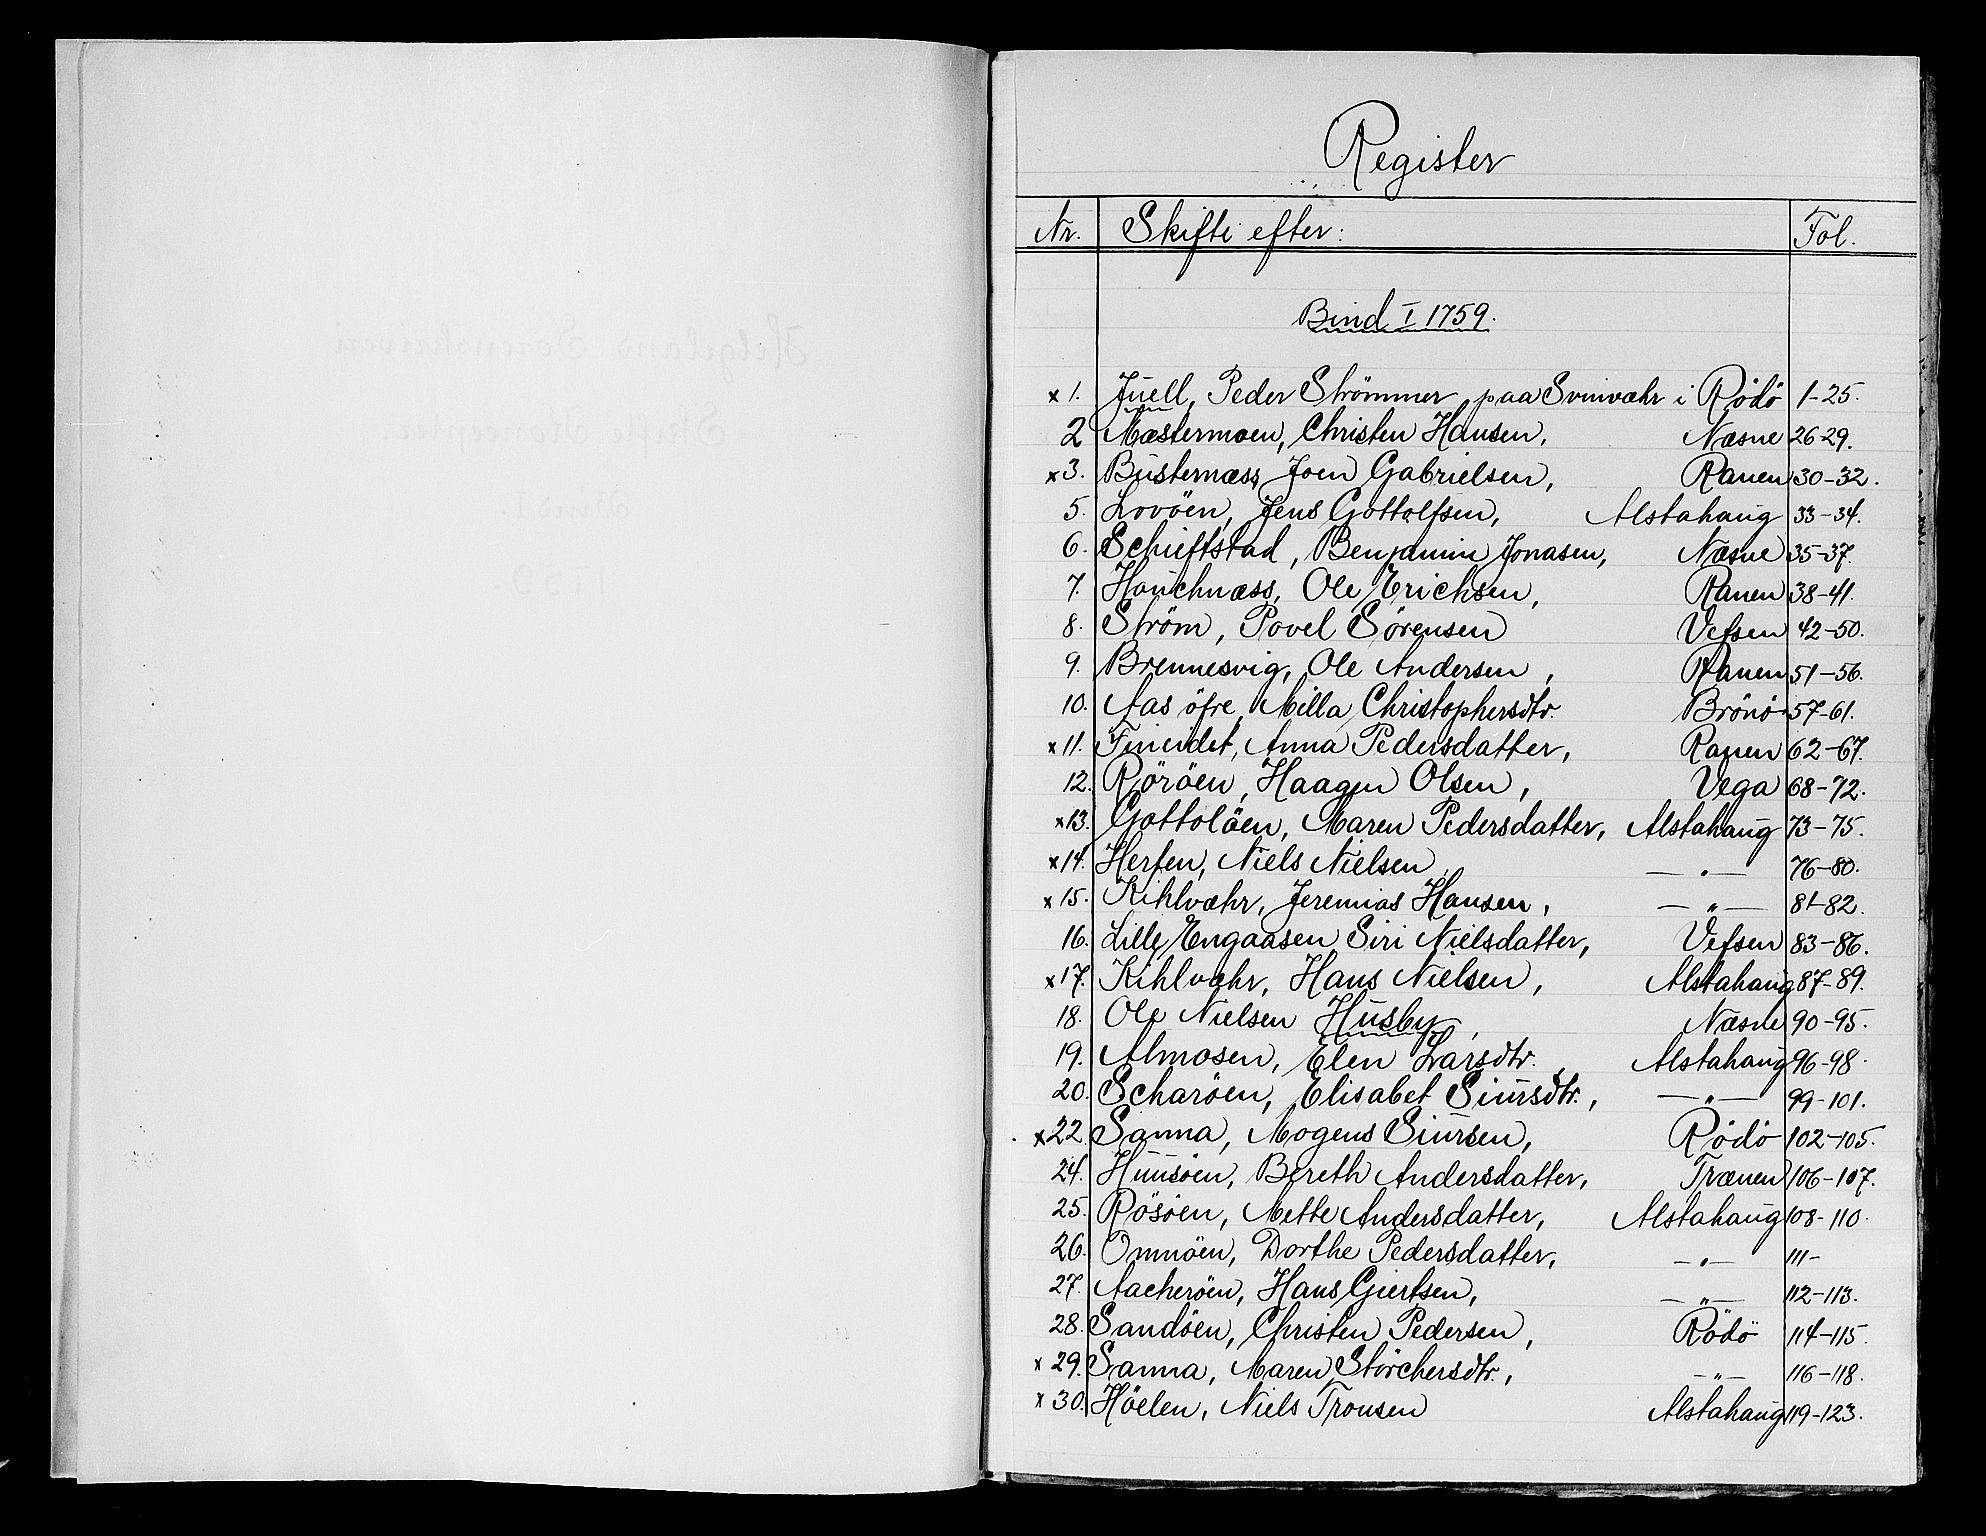 Register
Nr. Skifte efter: Fol.
Bind I 1759.
x 1. Juell, Peder Strømmer paa Svinvæhr i Rödö 1-25.
2 Mæstermoen, Christen Hansen, Næsne 26 29.
x 3. Busternæss, Joen Gabrielsen, Ranen 30-32.
5. Lovöen, Jens Gottolfsen, Alstahaug 33-34.
6. Schieftstad, Benjamin Jonasen, Næsne 35-37.
7. Hauchnæss, Ole Erichsen, Ranen 38-41.
8. Ström, Povel Sörensen Vefsen 42-50.
9. Brennesvig, Ole Andersen, Ranen 51-56.
10. Aas öfre, Milla Christophersdtr. Brönö 57-61.
x 11. Fineidet, Anna Pedersdatter, Ranen 62-67.
12. Röröen, Haagen Olsen, Vega 68-72.
x 13. Gottolöen, Maren Pedersdatter, Alstahaug 73-75.
x 14. Herfen, Niels Nielsen — " — 76-80.
x 15. Kihlvæhr, Jeremias Hansen, — " — 81-82.
16. Lille Engaasen Siri Nielsdatter, Vefsen 83-86.
x 17. Kihlvæhr, Hans Nielsen, Alstahaug 87-89.
18. Ole Nielsen Husby, Næsne 90-95.
19. Almosen, Elen Larsdtr., Alstahaug 96-98.
20. Scharöen, Elisabet Siursdtr., — " — 99-101.
x 22. Sanna, Mogens Siursen, Rödö 102-105.
24. Huusöen, Bereth Andersdatter, Trænen 106-107.
25. Rösöen, Mette Andersdatter, Alstahaug 108-110.
26. Omnöen, Dorthe Pedersdatter, — " — 111-
27. Aacheröen, Hans Giertsen, — " — 112-113.
28. Sandöen, Christen Pedersen, Rödö 114-115.
x 29. Sanna, Maren Störchersdtr., — " — 116-118.
x 30. Höelen, Niels Tronsen Alstahaug 119-123.